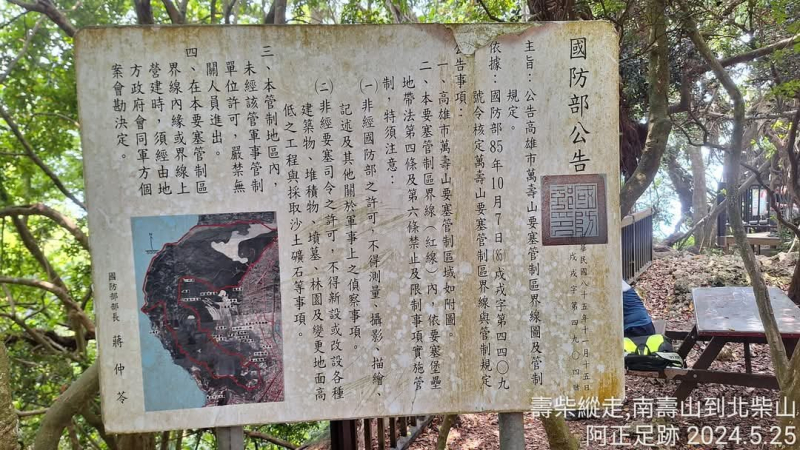 國防部公告
中華民國八十五年十一月十五日
戍戌字第四九〇四號
主旨：公告高雄市萬壽山要塞管制區界線圖及管制
規定。
依據：國防部85年10月7日(85)戍戌字第四四〇九
號令核定萬壽山要塞管制區界線與管制規定
公告事項：
一、高雄市萬壽山要塞管制區域如附圖。
二、本要塞管制區界線（紅線）內，依要塞堡壘
地帶法第四條及第六條禁止及限制事項實施管
制，特須注意：
(一)非經國防部之許可，不得測量、攝影、描繪、
記述及其他關於軍事上之偵察事項。
(二)非經要塞司令之許可，不得新設或改設各種
建築物、堆積物、墳墓、林園及變更地面高
低之工程與採取沙土礦石等事項。
三、本管制地區內，
未經該管軍事管制
單位許可，嚴禁無
關人員進出。
四、在本要塞管制區
界線內緣或界線上
營建時，須經由地
方政府會同軍方個
案會勘決定。
國防部部長 蔣仲苓
壽柴縱走,南壽山到北柴山
阿正足跡 2024.5.25